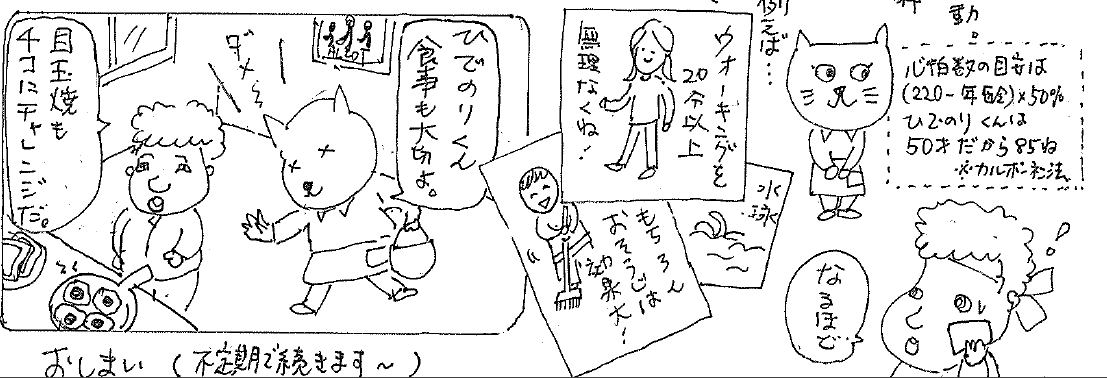 動。
例えば…
心拍数の目安は
(220-年齢)×50%
ひでのりくんは
50才だから85ね
※カルボーネン法
!?
なるほど
ウォーキングを
20分以上
無理なくね!
水泳
もちろん
おそうじは
効果大!
ひでのりくん
食事も大切よ。
ダメ〜
目玉焼も
4コにチャレンジだ。
おしまい(不定期で続きます〜)